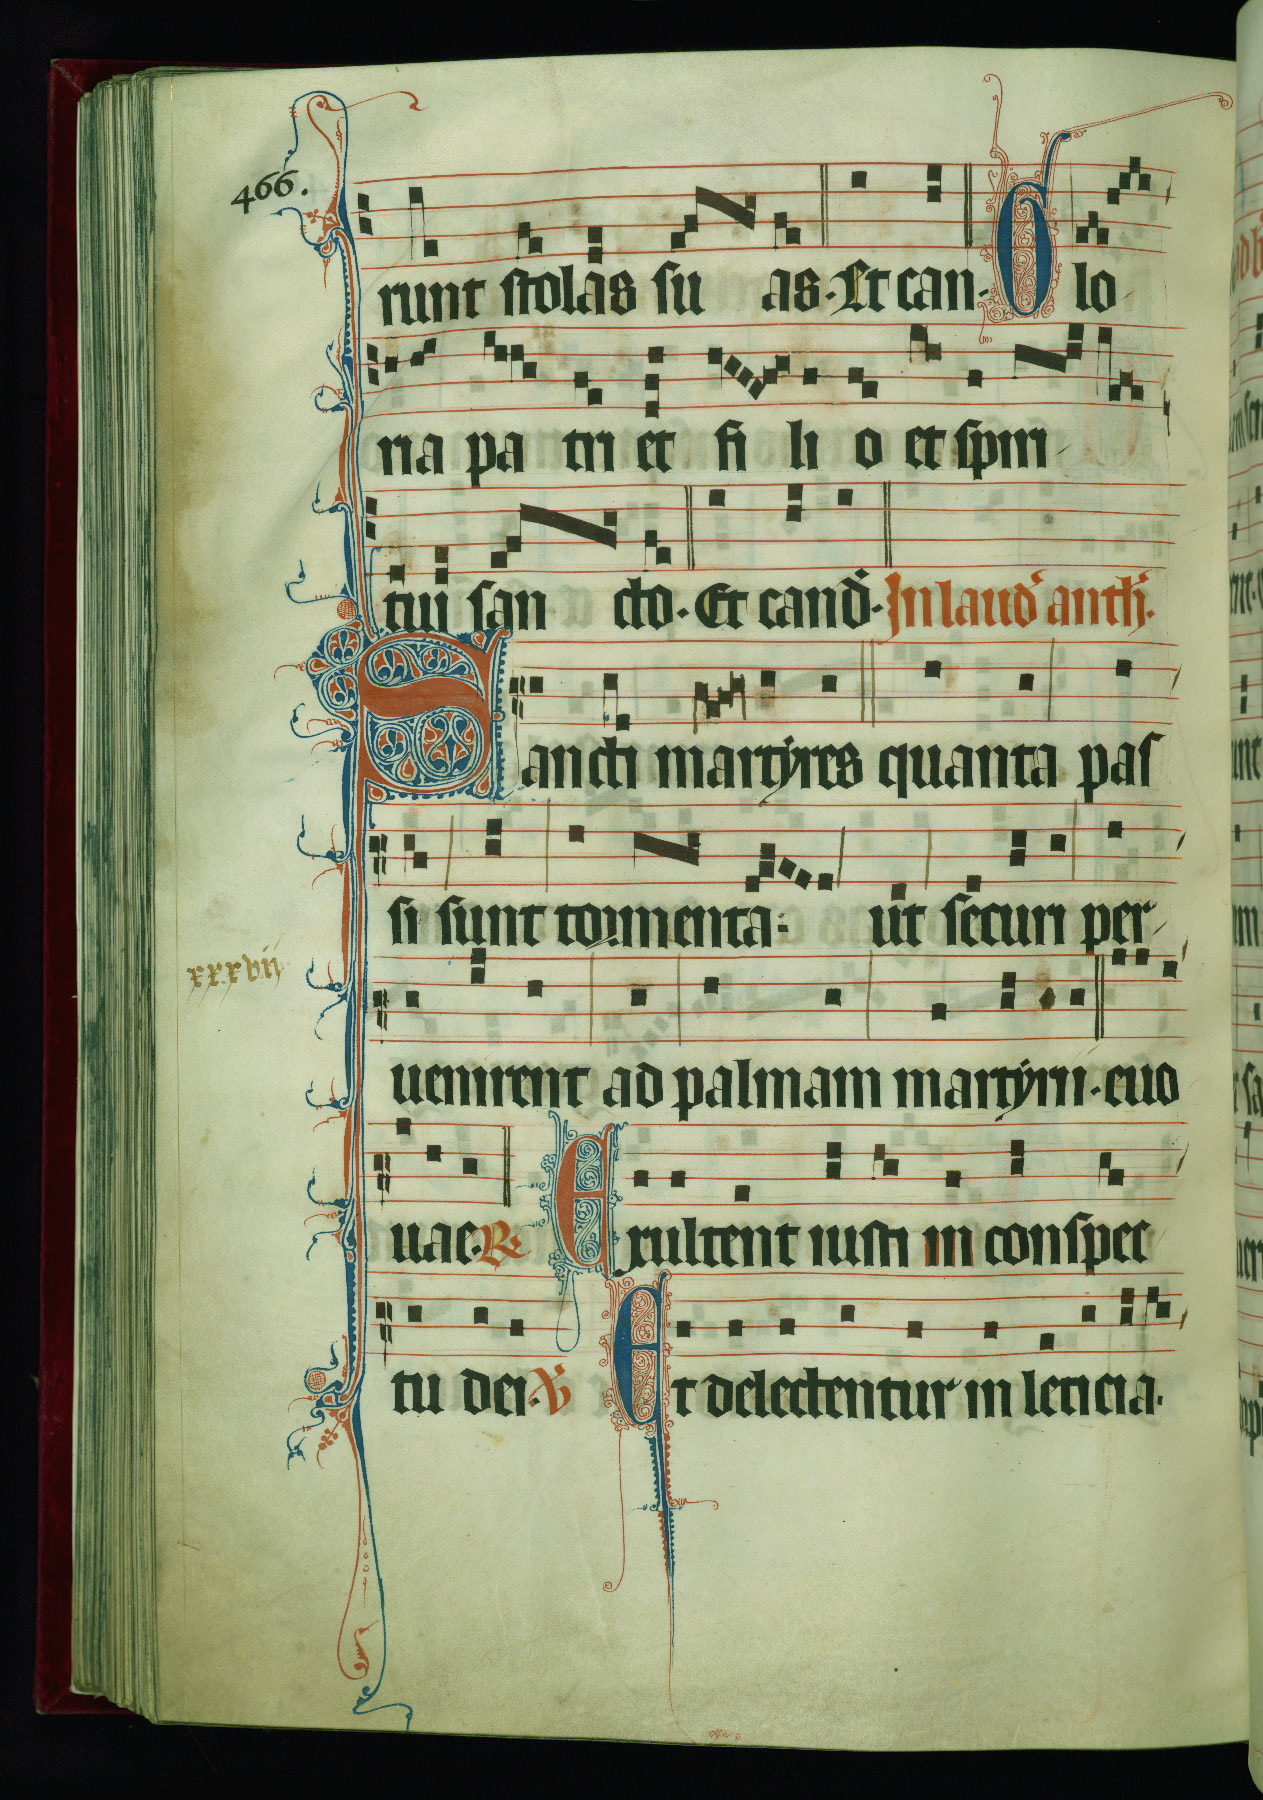 466.
runt stolas su as. Et can. Glo
ria pa tri et fi li o et spiri
tui san cto. Et cand. In laud anth.
Sancti martyres quanta pas
si sunt tormenta. ut securi per
xxxvii
uenirent ad palmam martyrii. euo
uae. R. Exultent iusti in conspec
tu dei. V Et delectentur in leticia.